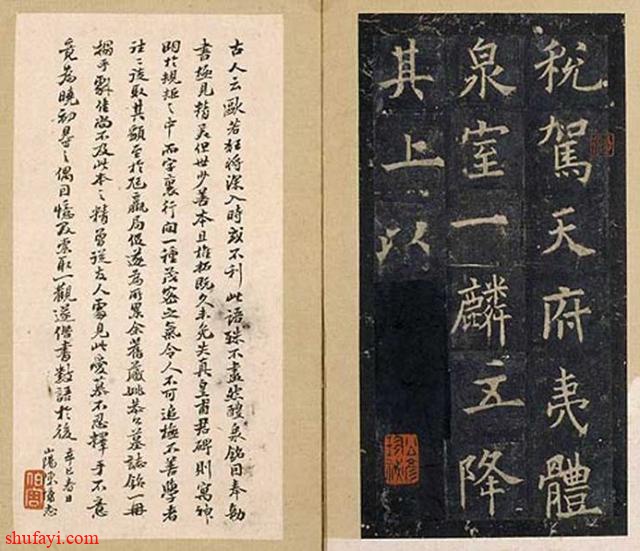 税駕天府夷體
泉室一麟五降
其上以
古人云歐若狂將深入時或不利此語殊不盡然醴泉銘因奉勅
書極見精美但世少善本且椎拓既久未免失真皇甫君碑則寓神
明於規矩之中而字裏行間一種茂密之氣令人不可追極不善學者
往往徒取其顯至於尪羸局促遂為所累余舊藏姚恭公墓誌銘一冊
搨手佳尚不及此本之精曾從友人處見此愛慕不忍釋手不意
竟為曉初尋之偶因憶及索取一觀遂借書數語於後
辛巳春日
山陽志
shufayi.com